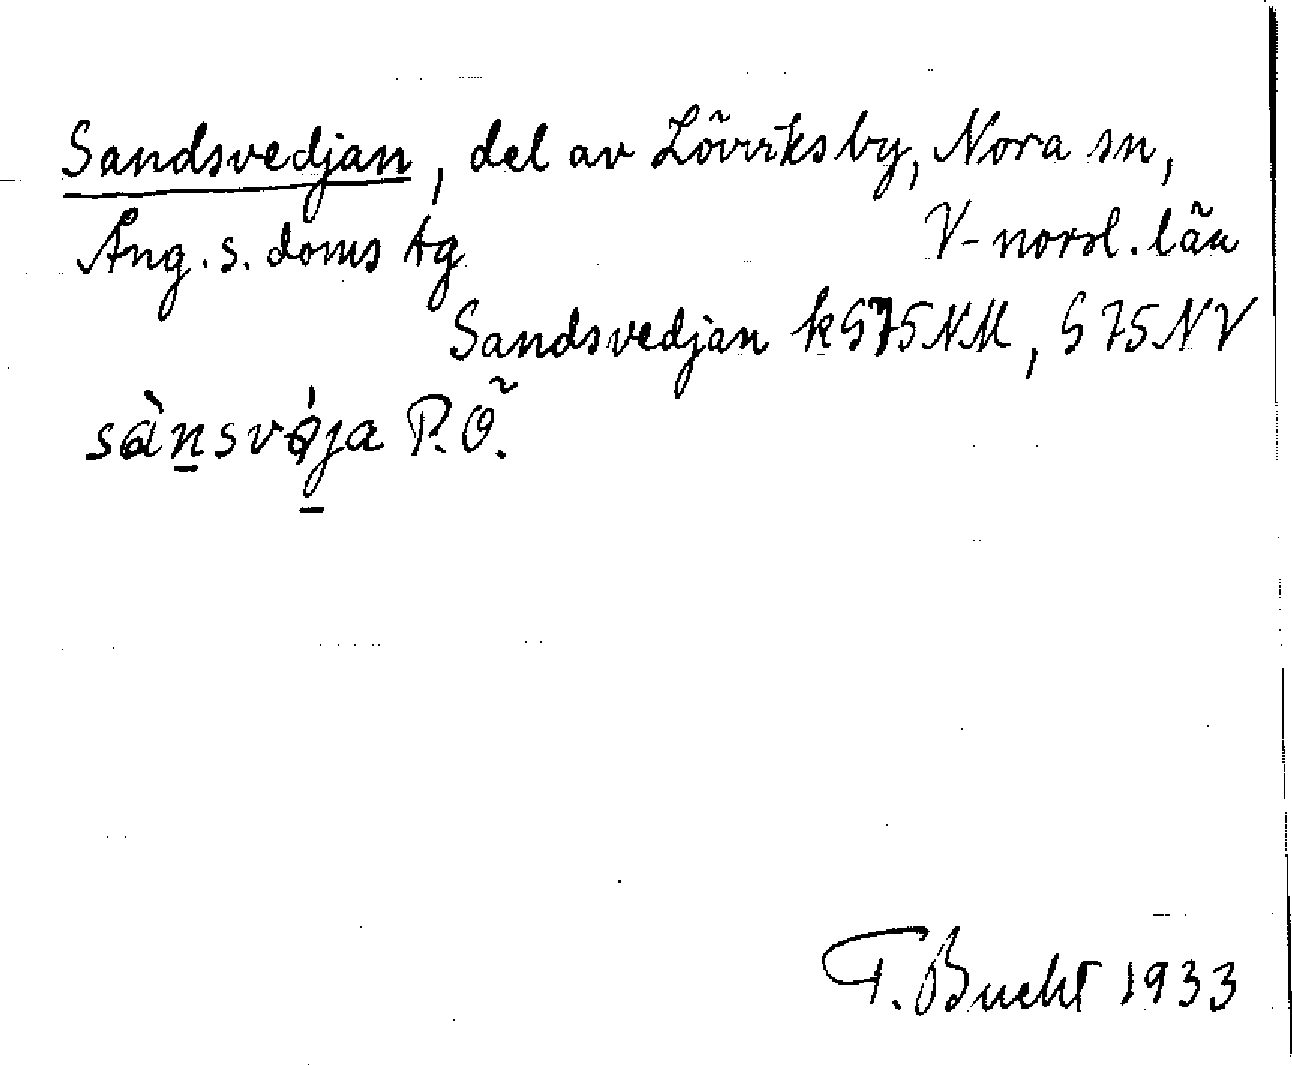 Sandsvedjan, del av Lövviks by, Nora sn,
Ång. s. doms tg V-norrl. län
Sandsvedjan k S75NM, S 75 NV
sànsvǿja P.Ö.
T. Bucht 1933